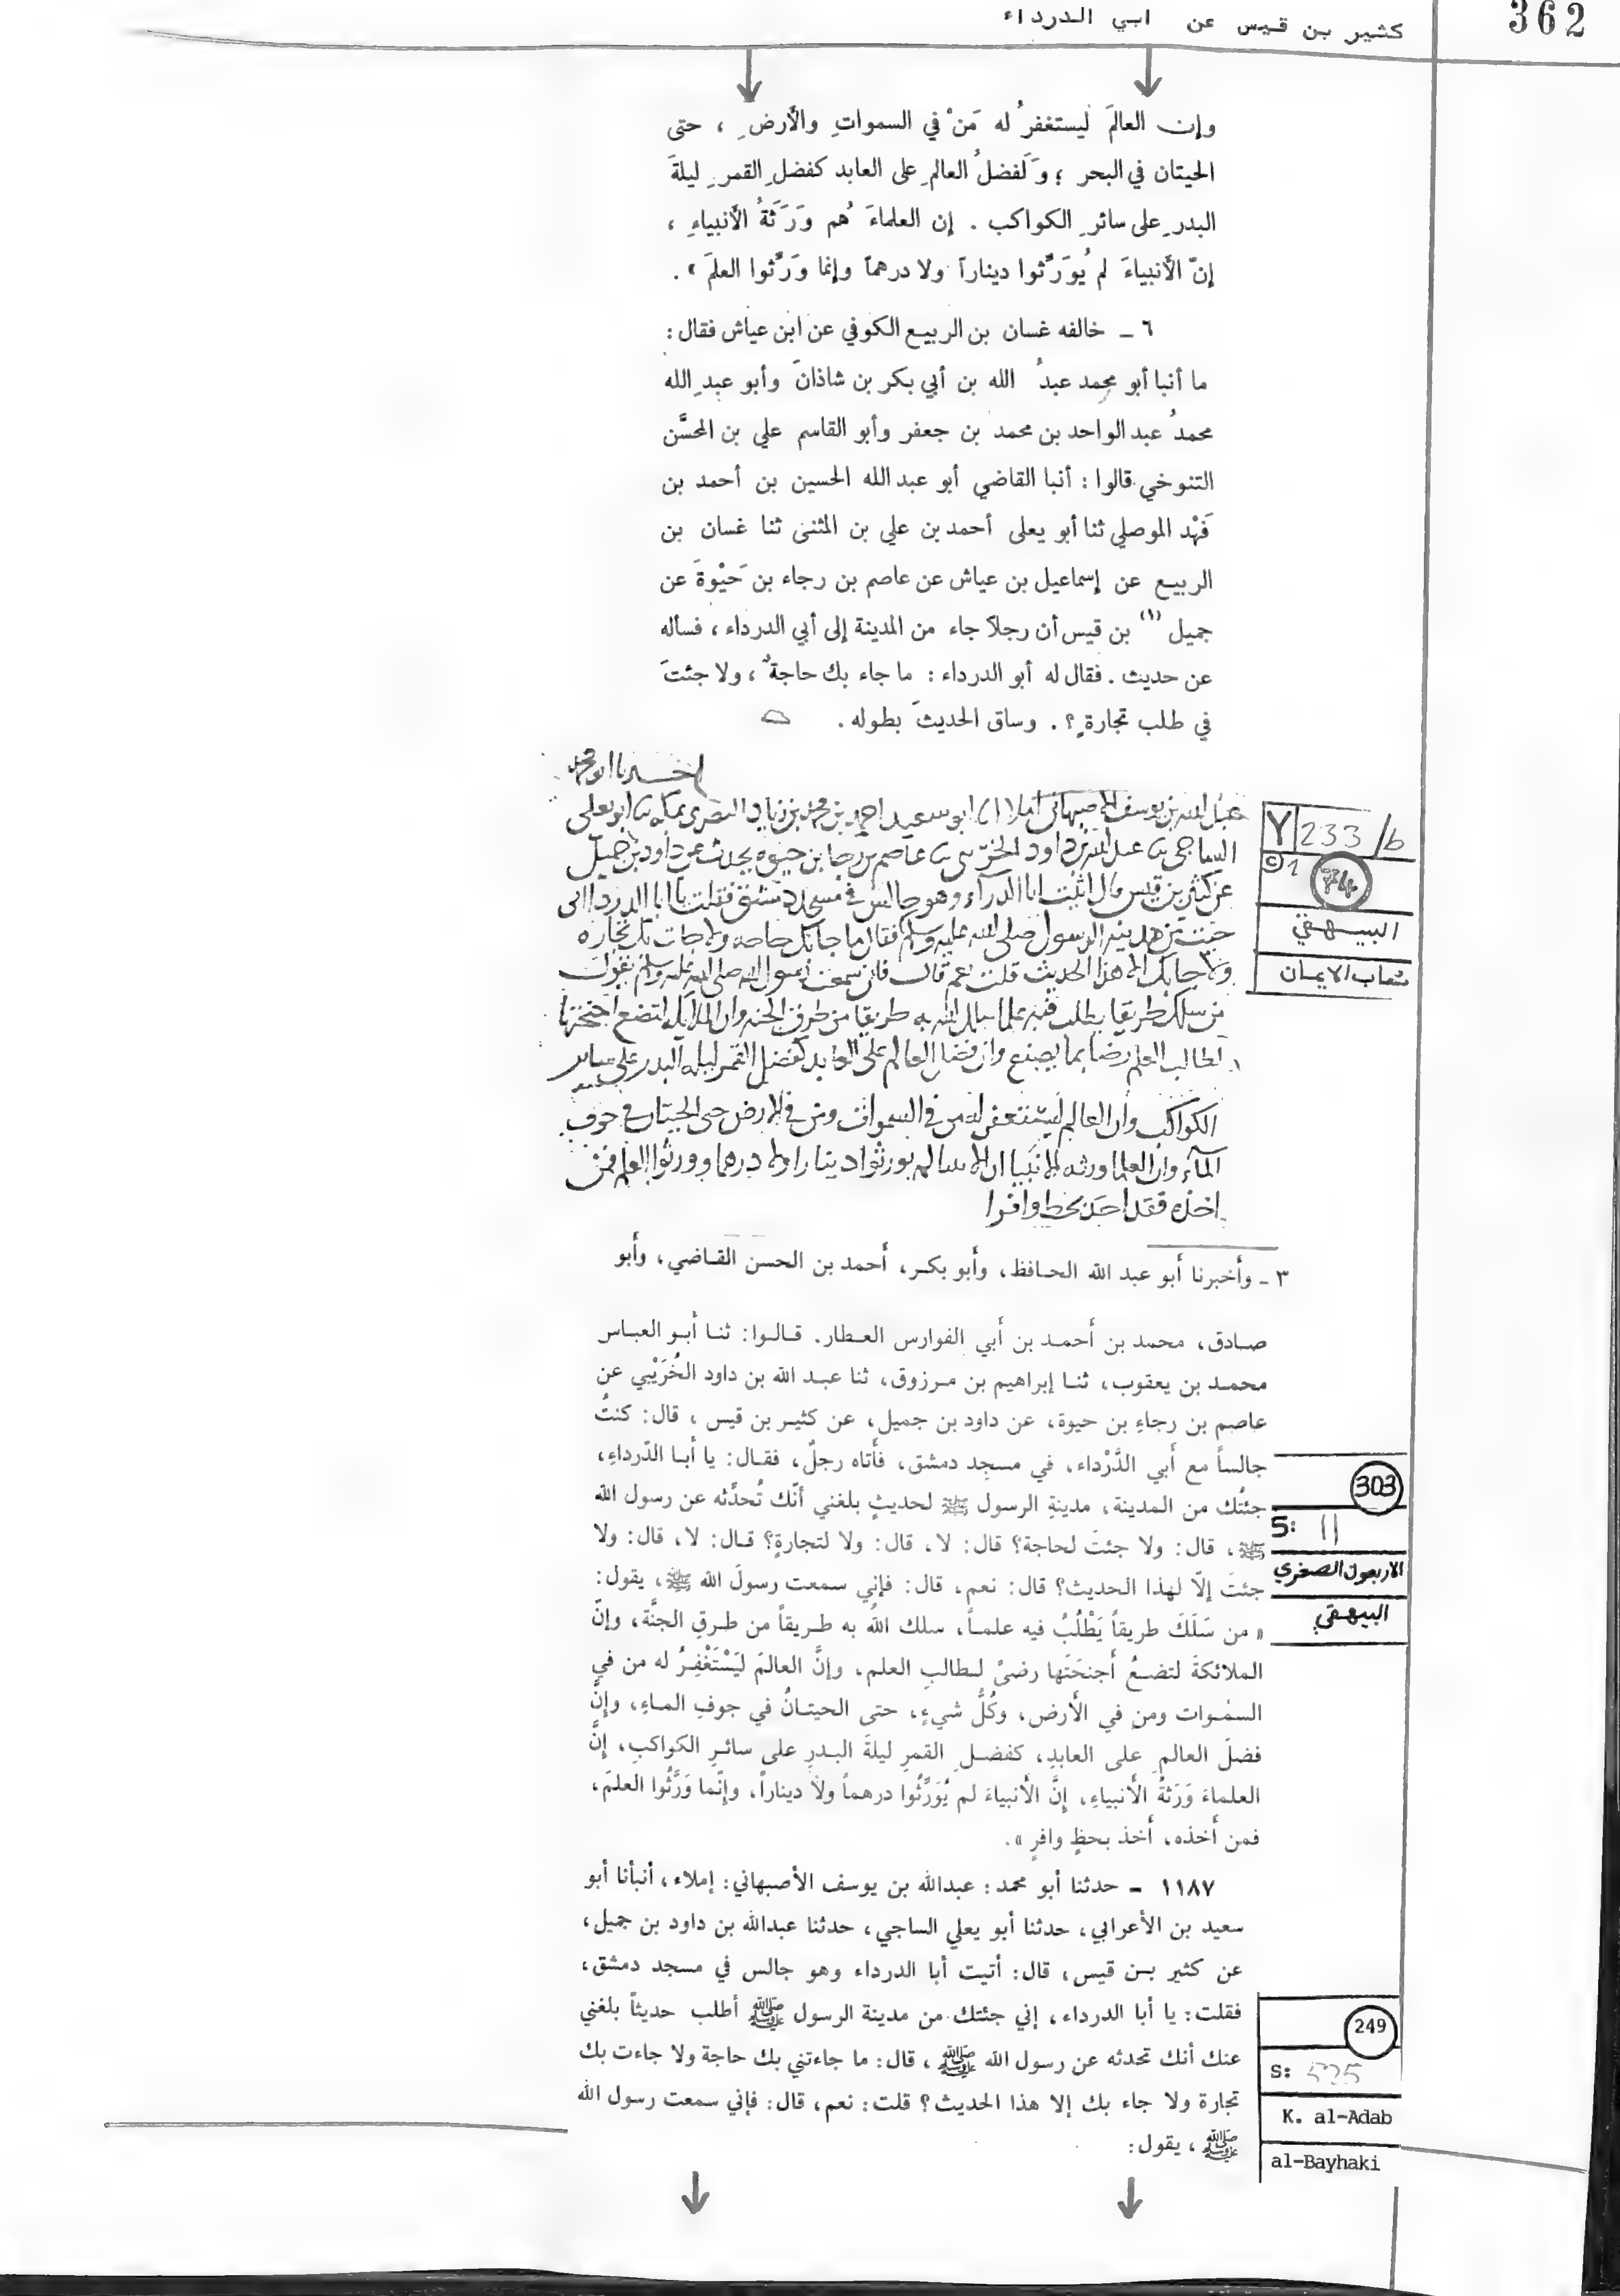 362
كثير بن قيس عن ابي الدرداء
وإن العالمَ ليستغفرُ له مَنْ في السمواتِ والأرضِ ، حتى
الحيتان في البحر ؛ وَلَفضلُ العالمِ على العابد كفضلِ القمرِ ليلةَ
البدرِ على سائرِ الكواكب . إن العلماءَ هُم وَرَثَةُ الأنبياءِ ،
إنّ الأنبياءَ لم يُوَرِّثوا ديناراً ولا درهماً وإنما وَرَّثوا العلمَ » .
٦ ــ خالفه غسان بن الربيع الكوفي عن ابن عياش فقال :
ما أنبا أبو محمد عبدُ الله بن أبي بكر بن شاذانَ وأبو عبدِ الله
محمدُ عبد الواحد بن محمد بن جعفر وأبو القاسم علي بن المحسَّن
التنوخي قالوا : أنبا القاضي أبو عبد الله الحسين بن أحمد بن
فَهْد الموصلي ثنا أبو يعلى أحمد بن علي بن المثنى ثنا غسان بن
الربيع عن إسماعيل بن عياش عن عاصم بن رجاء بن حَيْوةَ عن
جميل (١) بن قيس أن رجلاً جاء من المدينة إلى أبي الدرداء ، فسأله
عن حديث . فقال له أبو الدرداء : ما جاء بك حاجةٌ ، ولا جئتَ
في طلب تجارةٍ ؟ . وساق الحديثَ بطوله .
اخبرنا ابو محمد
عبد الله بن يوسف الاصبهاني املا انا ابو سعيد احمد بن محمد بن زياد البصري بمكة نا ابو يعلى
الساجي نا عبد الله بن داود الخريبي نا عاصم بن رجا بن حيوه يحدث عن داود بن جميل
عن كثير بن قيس قال اتيت ابا الدرداء وهو جالس في مسجد دمشق فقلت يا ابا الدرداء اني
جيت من مدينه الرسول صلى الله عليه وسلم فقال ما جا بك حاجه ولا جات بك تجاره
ولا جا بك الا هذا الحديث قلت نعم قال فاني سمعت رسول الله صلى الله عليه وسلم يقول
من سلك طريقا يطلب فيه علما سلك الله به طريقا من طرق الجنه وان الملايكه لتضع اجنحتها
لطالب العلم رضا بما يصنع وان فضل العالم على العابد كفضل القمر ليله البدر على ساير
الكواكب وان العالم ليستغفر له من في السموات ومن في الارض حتى الحيتان في جوف
المآء وان العلما ورثه الانبيا ان الانبيا لم يورثوا دينارا ولا درهما وورثوا العلم فمن
اخذه فقد اخذ بحظ وافرا
Y 233/b
© 1 74
البيهقي
شعاب الايمان
٣ ـ وأخبرنا أبو عبد الله الحافظ، وأبو بكر، أحمد بن الحسن القاضي، وأبو
صادق، محمد بن أحمد بن أبي الفوارس العطار. قالوا: ثنا أبو العباس
محمد بن يعقوب، ثنا إبراهيم بن مرزوق، ثنا عبد الله بن داود الخُرَيْبي عن
عاصم بن رجاءِ بن حيوة، عن داود بن جميل، عن كثير بن قيس ، قال: كنتُ
جالساً مع أبي الدَّرْداء، في مسجِد دمشق، فأتاه رجلٌ، فقال: يا أبا الدّرداءِ،
جئتُك من المدينة، مدينةِ الرسول ﷺ لحديثٍ بلغني أنّك تُحدّثه عن رسول الله
ﷺ، قال: ولا جئتَ لحاجة؟ قال: لا، قال: ولا لتجارةٍ؟ قال: لا، قال: ولا
جئتَ إلّا لهذا الحديث؟ قال: نعم، قال: فإني سمعت رسولَ الله ﷺ، يقول:
« من سَلَكَ طريقاً يَطْلُبُ فيه علماً، سلك اللهُ به طريقاً من طرقِ الجنَّة، وإنّ
الملائكةَ لتضعُ أجنحَتَها رضىً لطالبِ العلم، وإنَّ العالمَ ليَسْتَغْفِرُ له من في
السمٰوات ومن في الأرض، وكُلُّ شيءٍ، حتى الحيتانُ في جوفِ الماءِ، وإنَّ
فضلَ العالم على العابدِ، كفضلِ القمرِ ليلةَ البدرِ على سائرِ الكواكبِ، إنَّ
العلماءَ وَرَثةُ الأنبياءِ، إنَّ الأنبياءَ لم يُوَرِّثُوا درهماً ولا ديناراً، وإنّما وَرَّثُوا العلمَ،
فمن أخذه، أخذ بحظٍ وافرٍ ».
303
S: 11
الاربعون الصغرى
البيهقي
١١٨٧ ــ حدثنا أبو محمد : عبدالله بن يوسف الأصبهاني : إملاء ، أنبأنا أبو
سعيد بن الأعرابي ، حدثنا أبو يعلي الساجي ، حدثنا عبدالله بن داود بن جميل ،
عن كثير بن قيس ، قال : أتيت أبا الدرداء وهو جالس في مسجد دمشق ،
فقلت : يا أبا الدرداء ، إني جئتك من مدينة الرسول ﷺ أطلب حديثاً بلغني
عنك أنك تحدثه عن رسول الله ﷺ ، قال : ما جاءتني بك حاجة ولا جاءت بك
تجارة ولا جاء بك إلا هذا الحديث ؟ قلت : نعم ، قال : فإني سمعت رسول الله
ﷺ ، يقول :
249
S: 525
K. al-Adab
al-Bayhaki